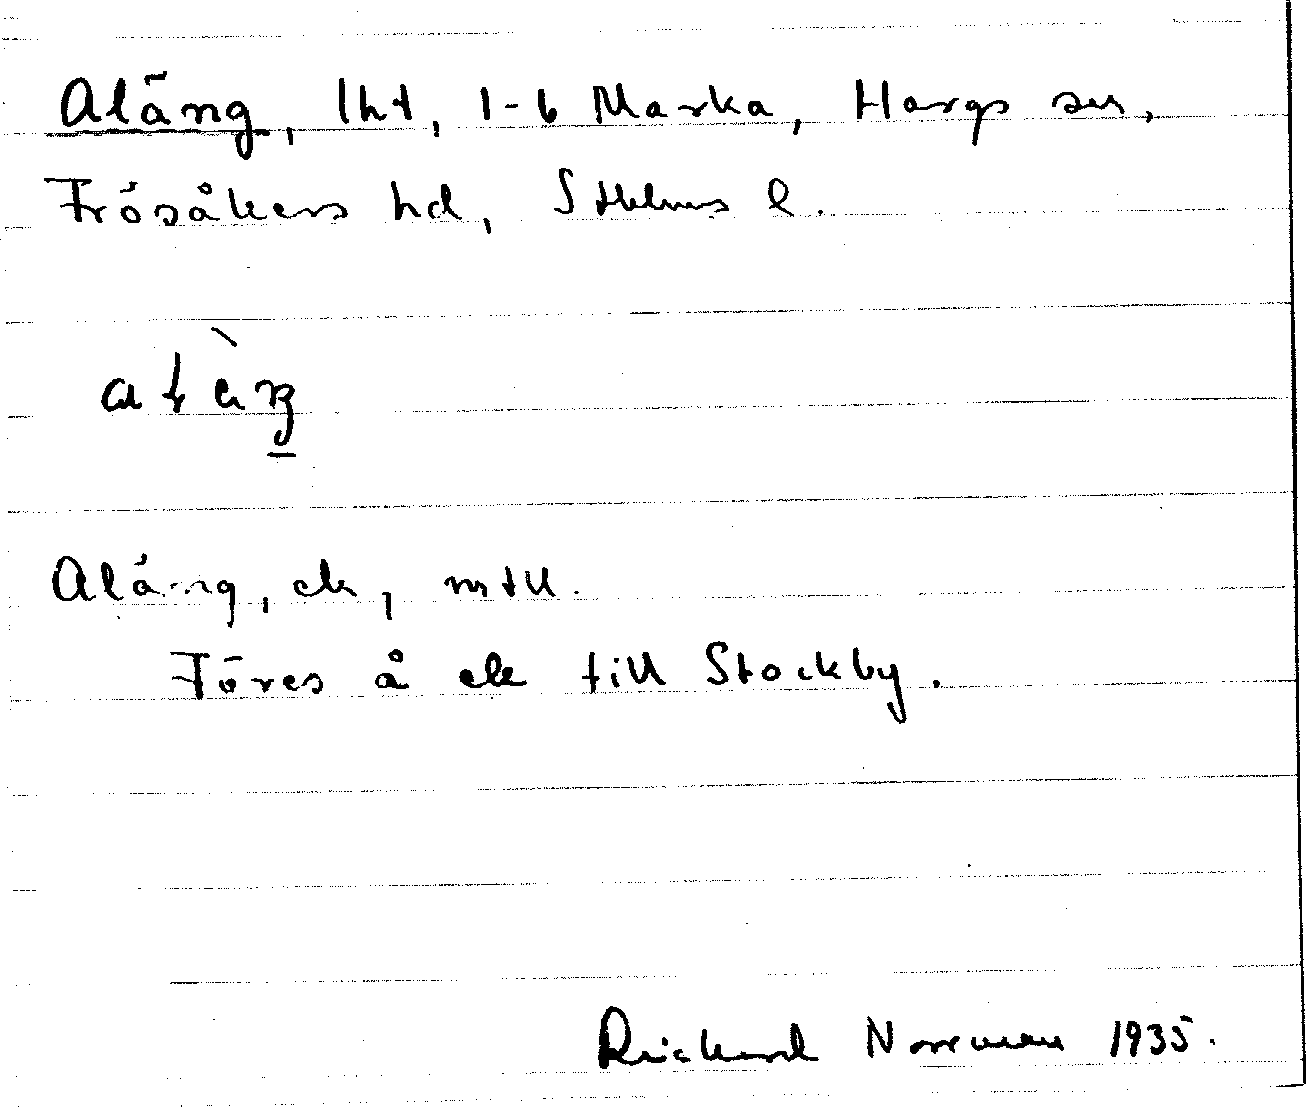 Aläng, lht, 1-6 Marka, Hargs sn,
Frösåkers hd, Sthlms l.
Aläng, ek, mtll.
Föres å ek till Stockby.
Rickard Norrman 1935.